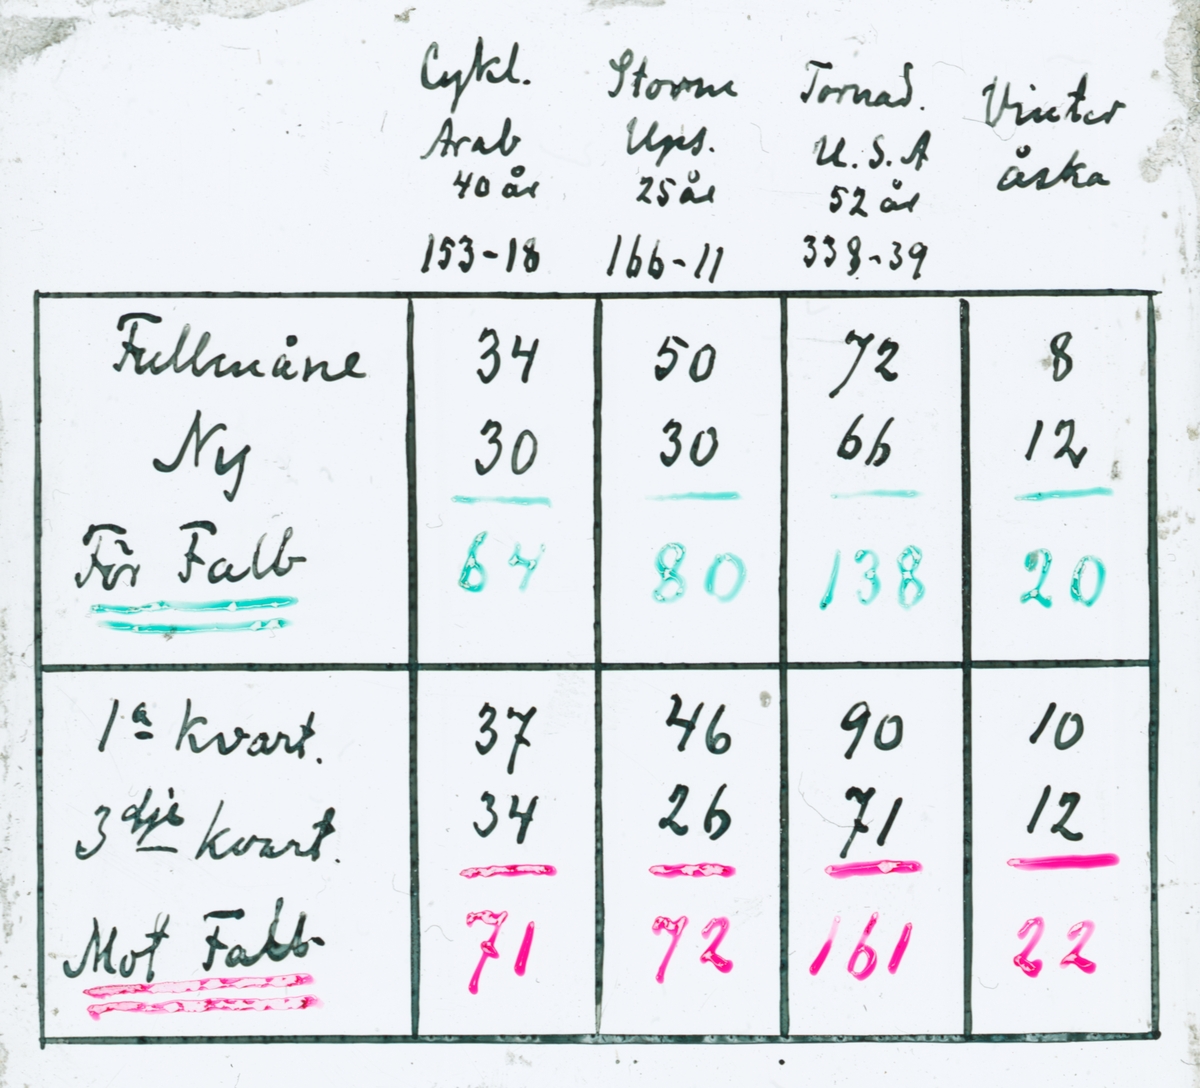 Cykl. Storm Tornad. Vinter
Arab Ups. U.S.A åska
40 år 25 år 52 år
153-18 166-11 338-39
Fullmåne 34 50 72 8
Ny 30 30 66 12
För Falb 64 80 138 20
1a Kvart. 37 46 90 10
3dje kvart. 34 26 71 12
Mot Falb 71 72 161 22